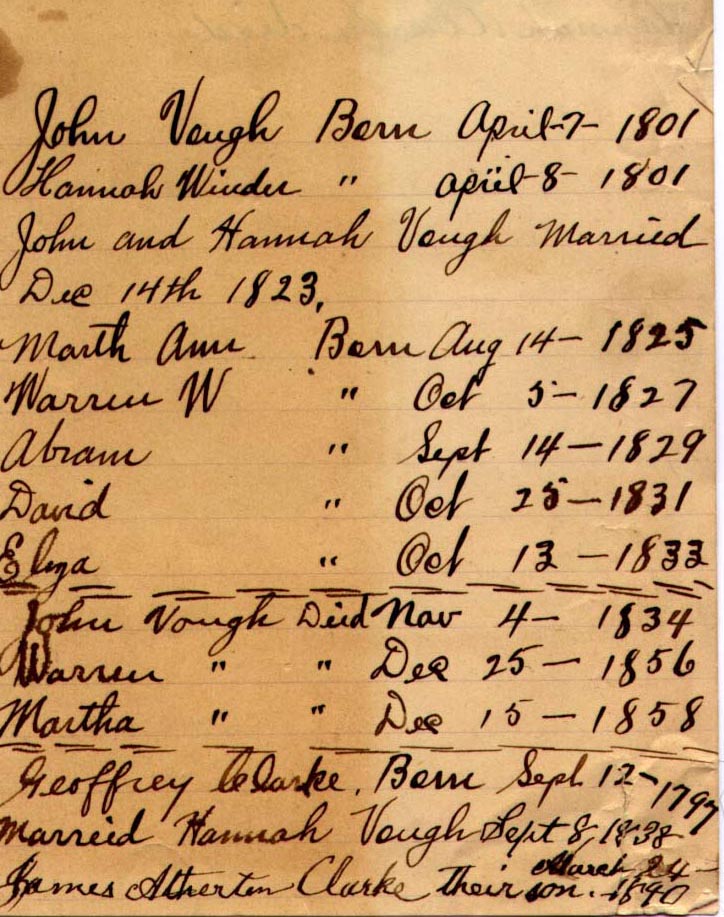 John Vough Born April-7-1801
Hannah Winder " april-8-1801
John and Hannah Vough Married
Dec 14th 1823,
Marth Ann Born Aug 14-1825
Warren W " Oct 5-1827
Abram " Sept 14-1829
David " Oct 25-1831
Eliza " Oct 13-1833
John Vough Died Nov 4-1834
Warren " " Dec 25-1856
Martha " " Dec 15-1858
Geoffrey Clarke. Born Sept 12-1797
Married Hannah Vough Sept 8, 1838
James Atherton Clarke their son. March 24-1890